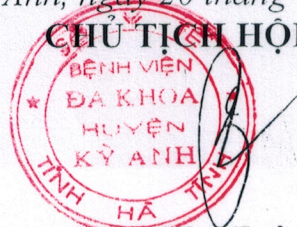 Anh, ngày 20 tháng
CHỦ TỊCH HỘI
BỆNH VIỆN
ĐA KHOA
HUYỆN
KỲ ANH
★ TỈNH HÀ TĨNH